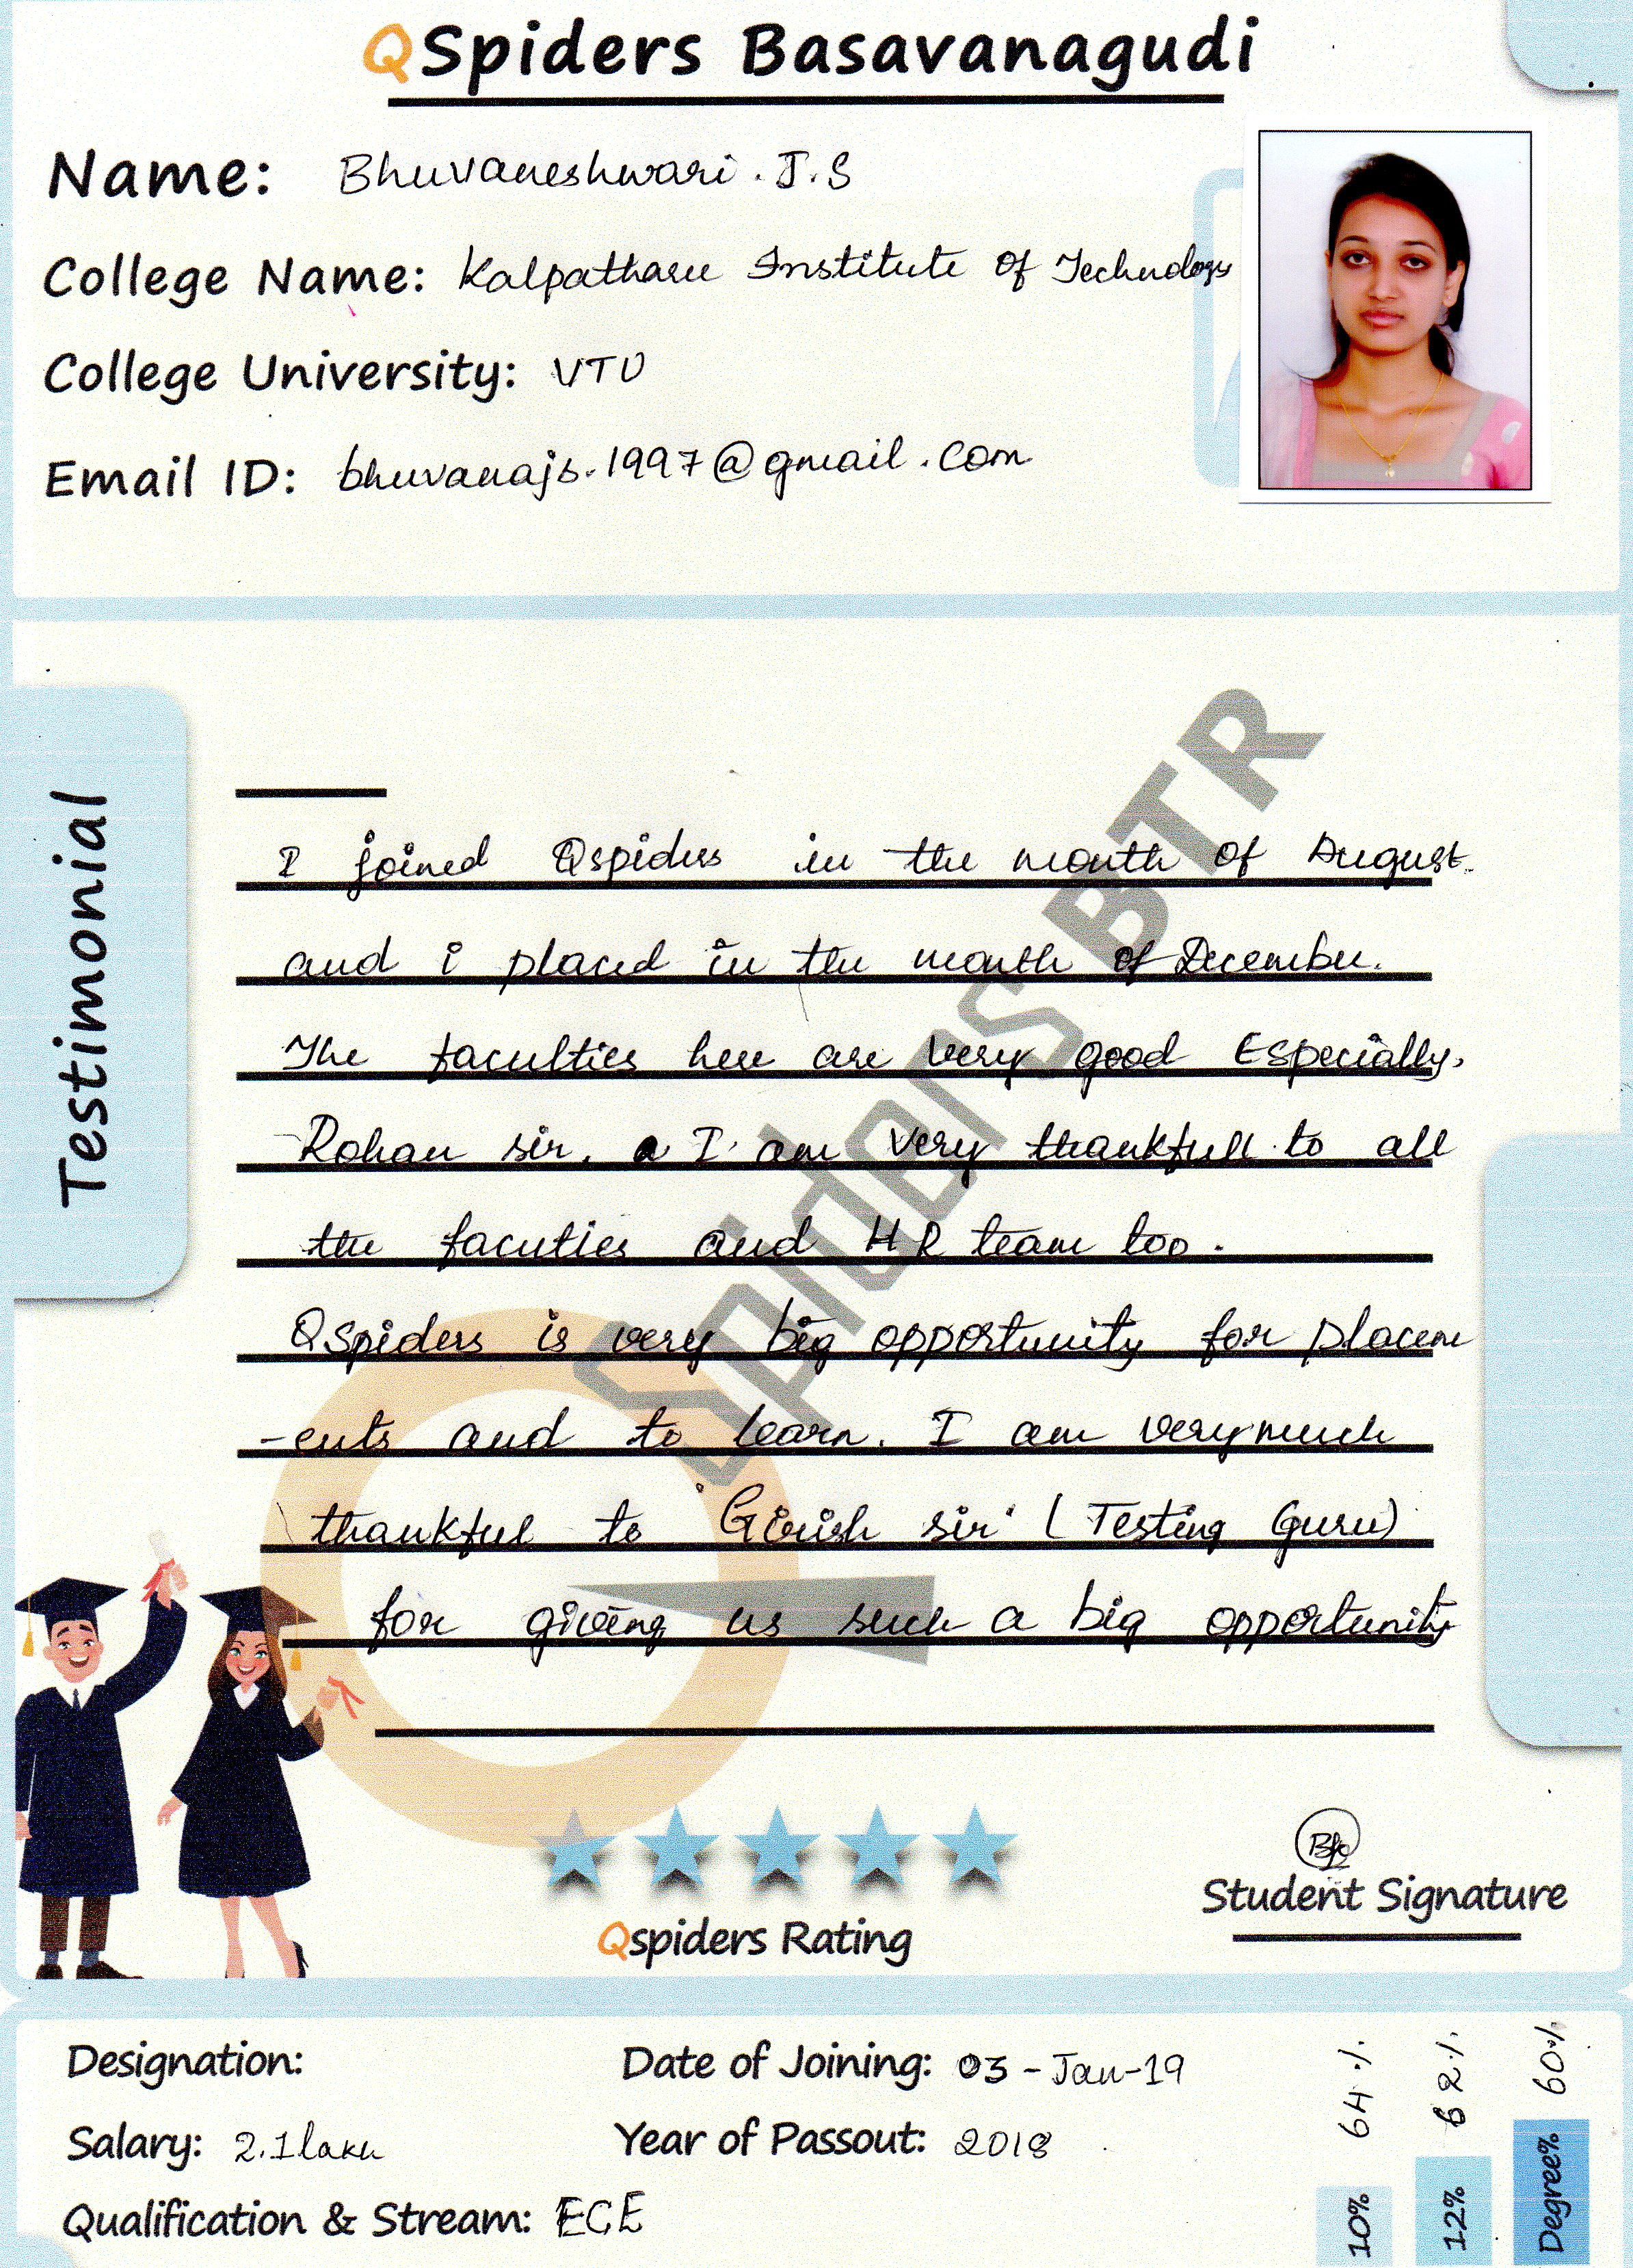 QSpiders Basavanagudi
Name: Bhuvaneshwari . J.S
College Name: Kalpatharu Institute Of Technology
College University: VTU
Email ID: bhuvanajs.1997@gmail.com
Testimonial
I joined Qspiders in the month of August.
and i placed in the month of December.
The faculties here are very good Especially,
Rohan sir. I am very thankfull to all
the facuties and HR team too.
QSpiders is very big opportunity for placem
-ents and to learn. I am very much
thankful to 'Girish sir' (Testing Guru)
for giving us such a big opportunity
Spiders BTR
Qspiders Rating
Student Signature
Designation:
Date of Joining: 03-Jan-19
Salary: 2.1 laku
Year of Passout: 2018
Qualification & Stream: ECE
10% 64%
12% 62%
Degree% 60%